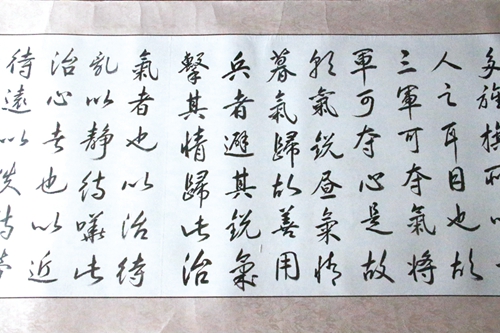 多旌旗所以
人之耳目也故
三軍可夺氣將
軍可夺心是故
朝氣銳昼氣惰
暮氣歸故善用
兵者避其銳氣
擊其惰歸此治
氣者也以治待
亂以静待嘩此
治心者也以近
待遠以佚待勞